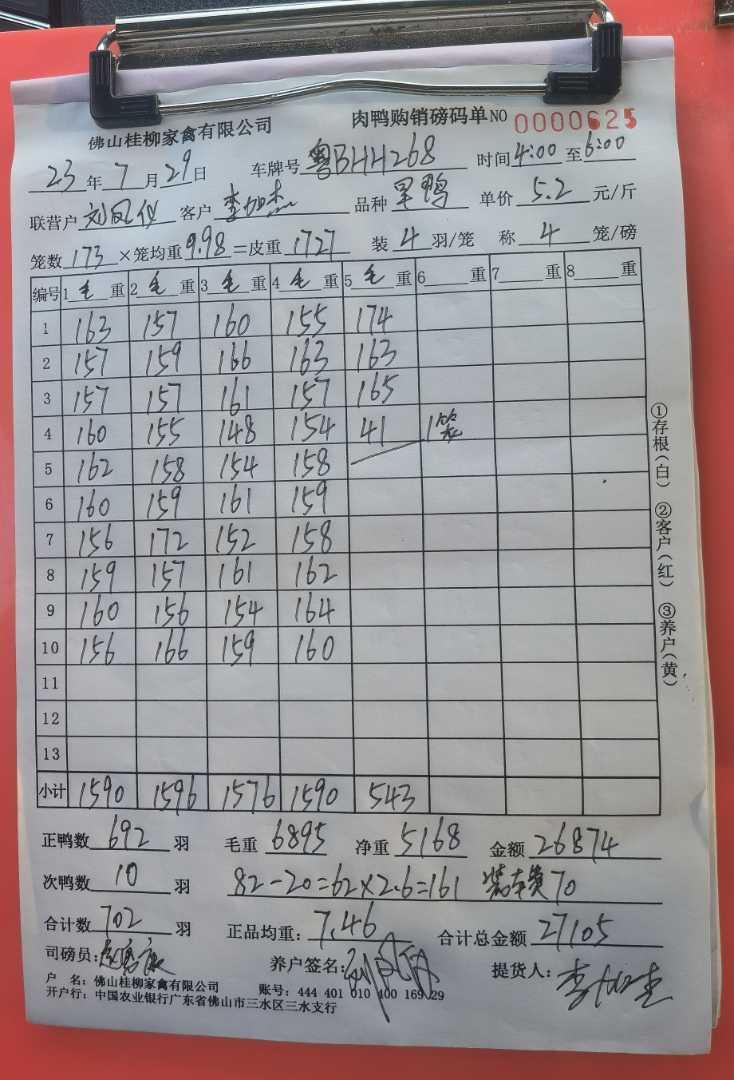 佛山桂柳家禽有限公司 肉鸭购销磅码单 NO 0000625
23年7月29日 车牌号 粤BHH268 时间 4:00 至 6:00
联营户 刘凤仪 客户 品种 旱鸭 单价 5.2 元/斤
笼数 173 ×笼均重 9.98 =皮重 1727 装 4 羽/笼 称 4 笼/磅
编号 1 毛 重 2 毛 重 3 毛 重 4 毛 重 5 毛 重 6 重 7 重 8 重
1 163 157 160 155 174
2 157 159 166 163 163
3 157 157 161 157 165
4 160 155 148 154 41 1笼
5 162 158 154 158
6 160 159 161 159
7 156 172 152 158
8 159 157 161 162
9 160 156 154 164
10 156 166 159 160
11
12
13
小计 1590 1596 1576 1590 543
①存根(白) ②客户(红) ③养户(黄)
正鸭数 692 羽 毛重 6895 净重 5168 金额 26874
次鸭数 10 羽 82-20=62×2.6=161 装车费70
合计数 702 羽 正品均重: 7.46 合计总金额 27105
司磅员: 养户签名: 提货人:
户 名: 佛山桂柳家禽有限公司 账号: 444 401 010 400 169 29
开户行: 中国农业银行广东省佛山市三水区三水支行